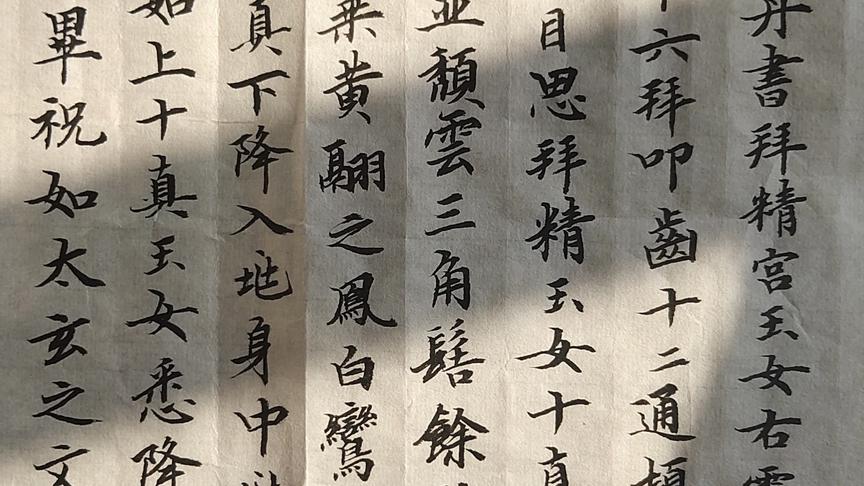 丹書拜精宮玉女右靈
十六拜叩齒十二通頓
目思拜精玉女十真
並頹雲三角髻餘
乘黃翮之鳳白鸞
真下降入兆身中
如上十真玉女悉降
畢祝如太玄之文